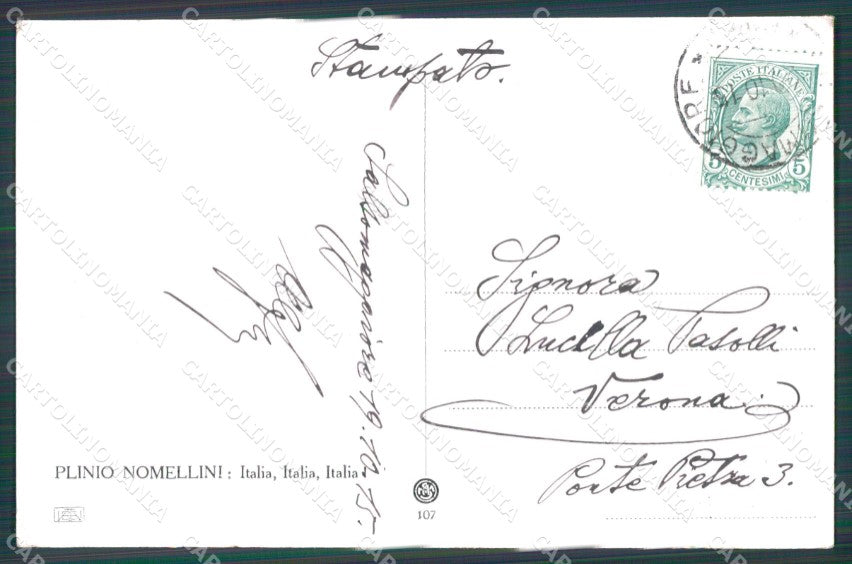 Stampato.
POSTE ITALIANE
5 CENTESIMI 5
MAGGIORE *
Salsomaggiore 19.10.15.
Signora
Lucilla Pasolli
Verona.
Ponte Pietra 3.
PLINIO NOMELLINI: Italia, Italia, Italia
107
CARTOLINOMANIA